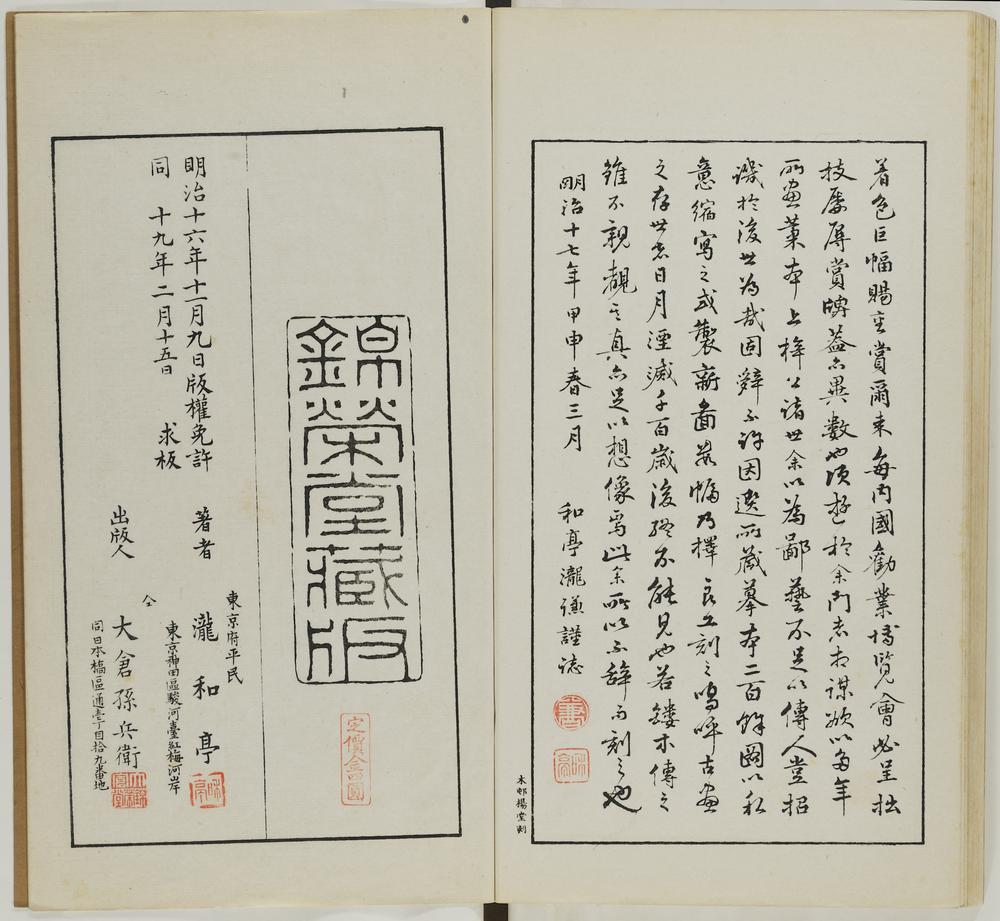 着色巨幅賜至賞爾来每內國勸業博覧會必呈拙
技屢辱賞牌蓋亦異數也頃遊於余門者相謀欲以多年
所畫藁本上梓公諸世余以為鄙藝不足以傳人豈招
譏於後世為哉固辭不許因選所蔵摹本二百餘圖以私
意縮寫之或製新圖若幅乃擇良工刻之嗚呼古畫
之存世者日月湮滅千百歳後終不能見也若鏤木傳之
雖不親覩其真亦足以想像焉此余所以不辭而刻之也
明治十七年甲申春三月 和亭瀧謙謹誌
木邨楊堂刻
錦榮堂藏版
定價金四圓
明治十六年十一月九日版權免許
同 十九年二月十五日 求板
東京府平民
著者 瀧和亭
東京神田區駿河臺紅梅河岸
和亭
出版人 仝 大倉孫兵衛
同日本橋區通壹丁目拾九番地